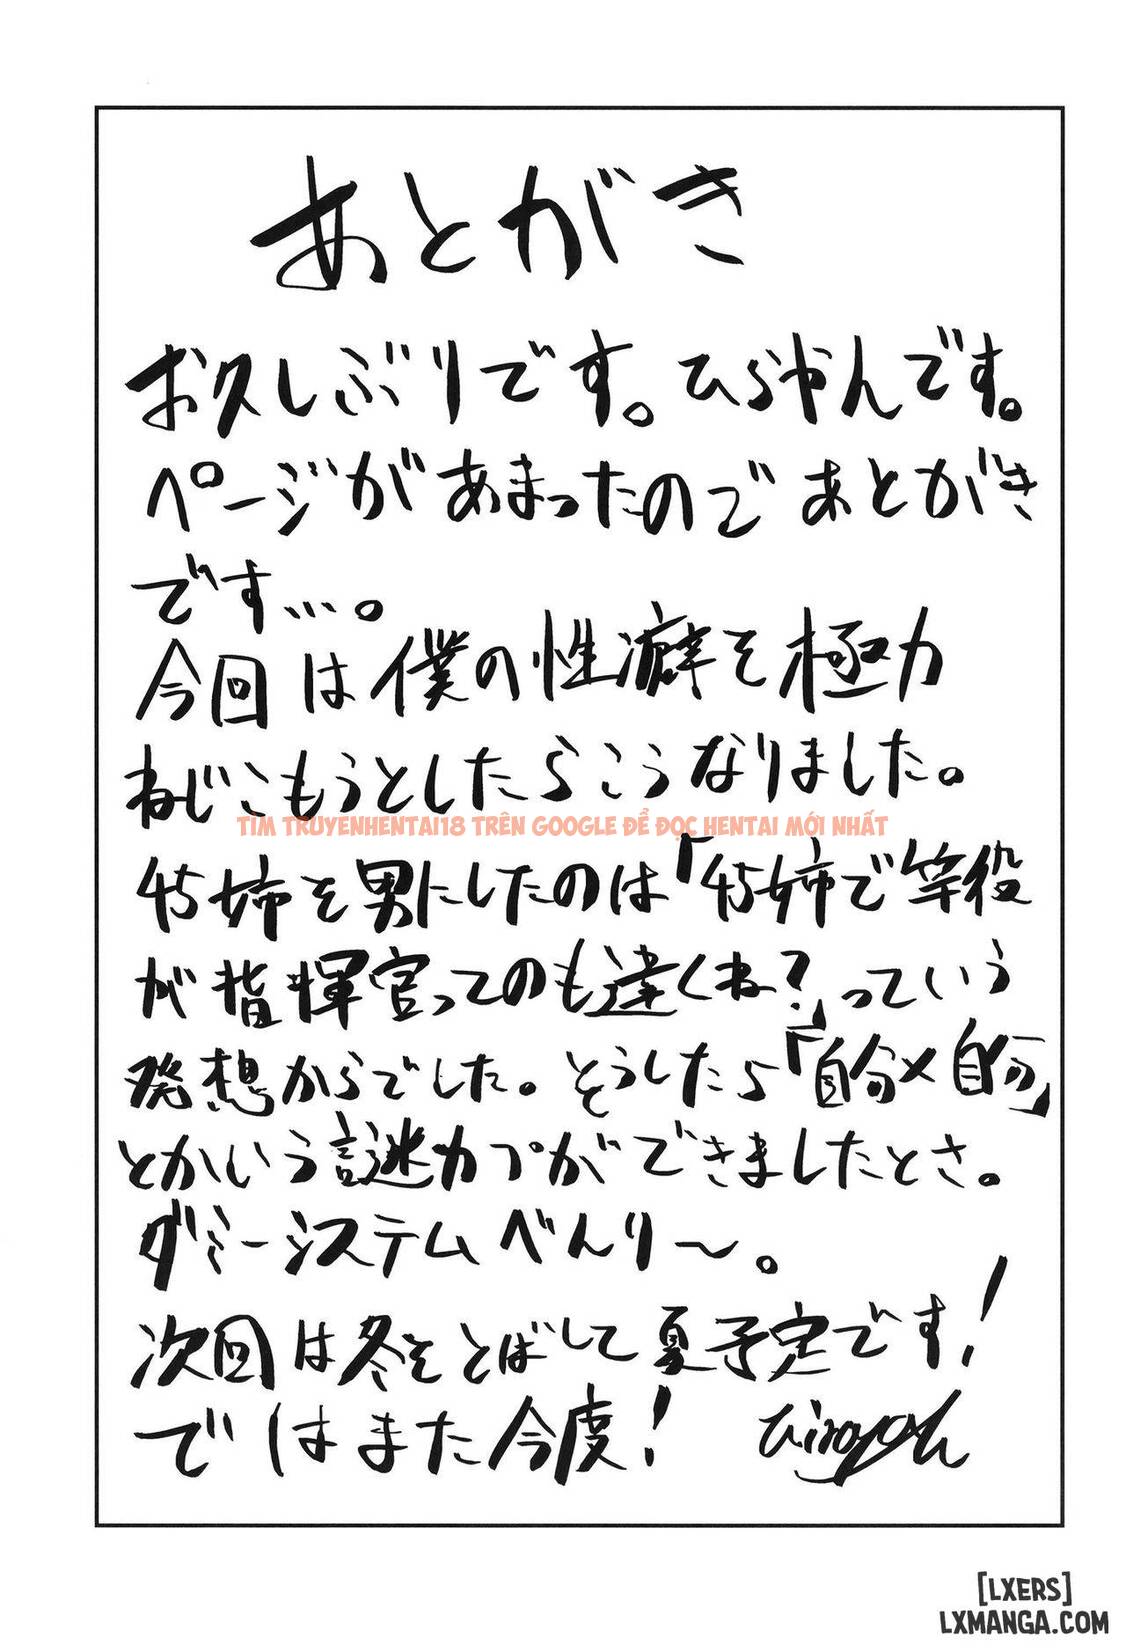 あとがき
お久しぶりです。ひらやんです。
ページがあまったのであとがき
です…。
今回は僕の性癖を極力
ねじこもうとしたらこうなりました。
TÌM TRUYENHENTAI18 TRÊN GOOGLE ĐỂ ĐỌC HENTAI MỚI NHẤT
45姉を男にしたのは「45姉で竿役
が指揮官ってのも違くね?」っていう
発想からでした。そうしたら「自分×自分」
とかいう謎カプができましたとさ。
ダミーシステムべんり〜。
次回は冬をとばして夏予定です!
ではまた今度!
[LXERS]
LXMANGA.COM